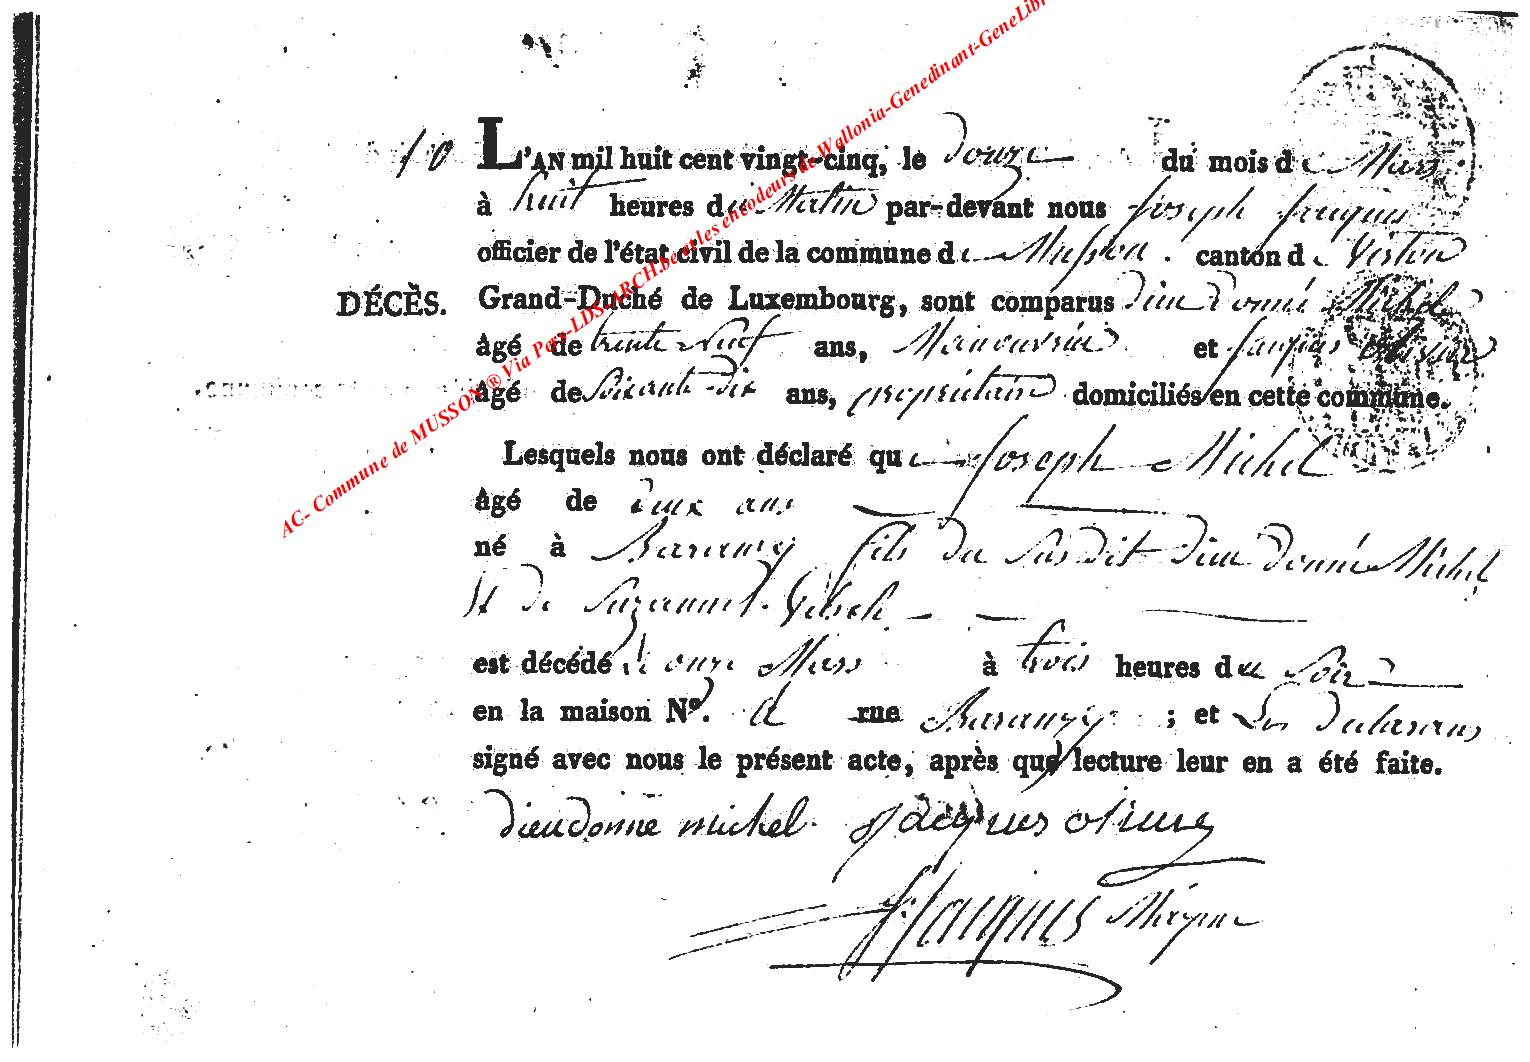 AC- Commune de MUSSON ® Via Part-LDS-ARCH.be et les encodeurs de Wallonia-Genedinant-GeneLibr
10 L'AN mil huit cent vingt-cinq, le douze du mois de Mars
à huit heures du Matin par-devant nous Joseph Jacques
officier de l'état civil de la commune de Musson. canton de Virton
DÉCÈS. Grand-Duché de Luxembourg, sont comparus dieu donné Michel
âgé de trente neuf ans, Manouvrier et Jacques
âgé de Soixante dix ans, propriétaire domiciliés en cette commune.
Lesquels nous ont déclaré que Joseph Michel
âgé de deux ans
né à Baranzy fils du Susdit dieu donné Michel
et de Suzanne
est décédé le onze Mars à trois heures du Soir
en la maison Nº. rue Baranzy ; et Les déclarans
signé avec nous le présent acte, après que lecture leur en a été faite.
dieudonné michel Jacques
J. Jacques Mayeur